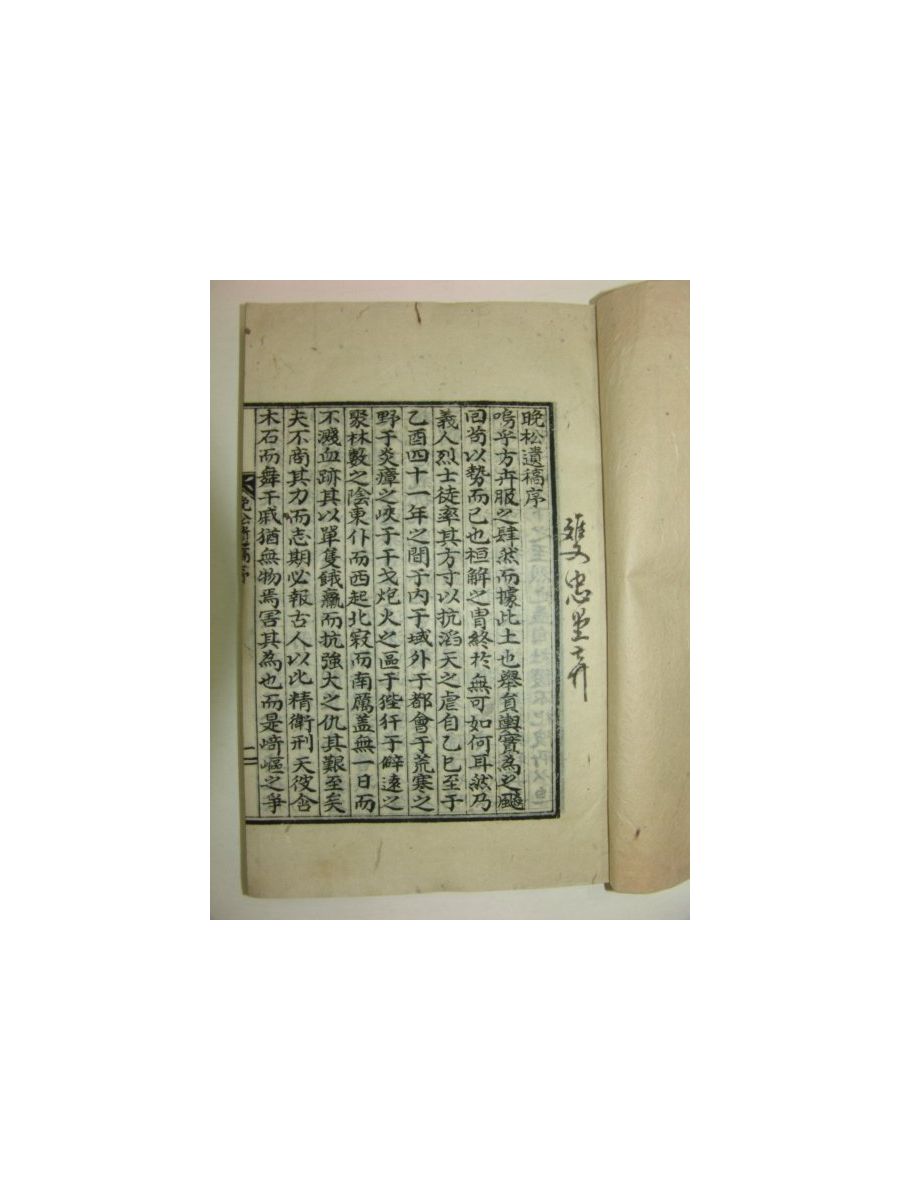 雙忠堂弆
晚松遺稿序
嗚乎方卉服之肆然而據此土也舉負輿實為之颺
回苟以勢而已也桓解之胄終於無可如何耳然乃
義人烈士徒率其方寸以抗滔天之虐自乙巳至于
乙酉四十一年之間于內于域外于都會于荒寒之
野于炎瘴之峽于干戈炮火之區于狴犴于僻遠之
聚林藪之陰東仆而西起北寂而南厲盖無一日而
不濺血跡其以單隻餓羸而抗強大之仇其艱至矣
夫不商其力而志期必報古人以比精衛刑天彼含
木石而舞干戚猶無物焉害其為也而是﨑嶇之爭
晚松遺稿序
一